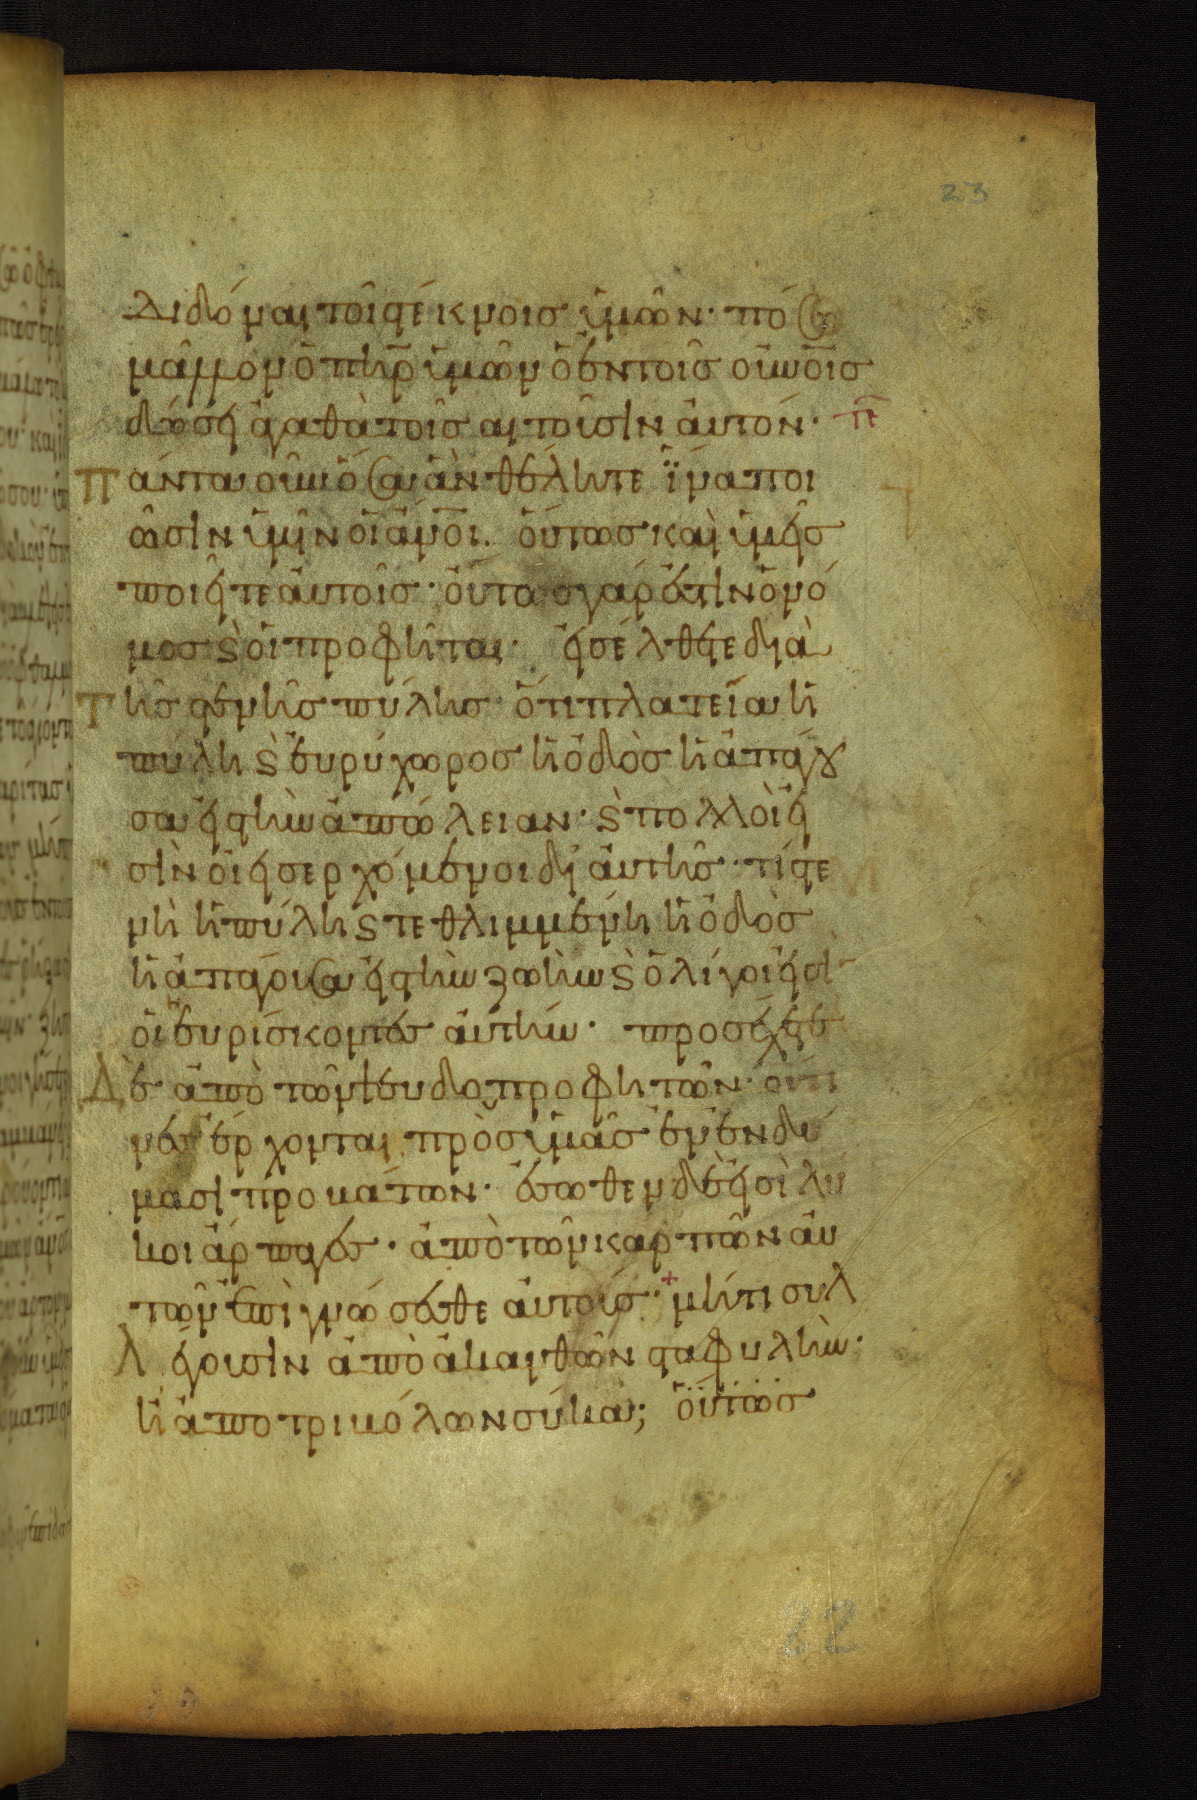 23
διδόναι τοῖς τέκνοις ὑμῶν· πόσω
μᾶλλον ὁ πη̅ρ ὑμῶν ὁ ἐν τοῖς οὐ̅νοῖς
δώσει ἀγαθὰ τοῖς αἰτοῦσιν αὐτόν·
Πάντα οὖν ὅσα ἂν θέλητε ἵνα ποι
ῶσιν ὑμῖν οἱ ἄ̅νοι. οὕτως καὶ ὑμεῖς
ποιεῖτε αὐτοῖς· οὗτος γάρ ἐστιν ὁ νό
μος ϗ οἱ προφῆται· εἰσέλθετε διὰ
Τῆς στενῆς πύλης· ὅτι πλατεῖα ἡ
πύλη ϗ εὐρύχωρος ἡ ὁδὸς ἡ ἀπάγου
σα εἰς τὴν ἀπώλειαν· ϗ πολλοὶ εἰ
σὶν οἱ εἰσερχόμενοι δι αὐτῆς· τί στε
νὴ ἡ πύλη ϗ τεθλιμμένη ἡ ὁδὸς
ἡ ἀπάγουσα εἰς τὴν ζωὴν ϗ ὀλίγοι εἰσὶ
οἱ εὑρίσκοντες αὐτήν· προσέχετε
Δὲ ἀπὸ τῶν ψευδοπροφητῶν· οἵτι
νες ἔρχονται πρὸς ὑμᾶς ἐν ἐνδύ
μασι προβάτων· ἔσωθεν δὲ εἰσὶ λύ
κοι ἅρπαγες· ἀπὸ τῶν καρπῶν αὐ
τῶν ἐπιγνώσεσθε αὐτούς· μήτι συλ
λέγουσιν ἀπὸ ἀκανθῶν σταφυλὴν·
ἢ ἀπο τριβόλων σύκα; οὕτως
22